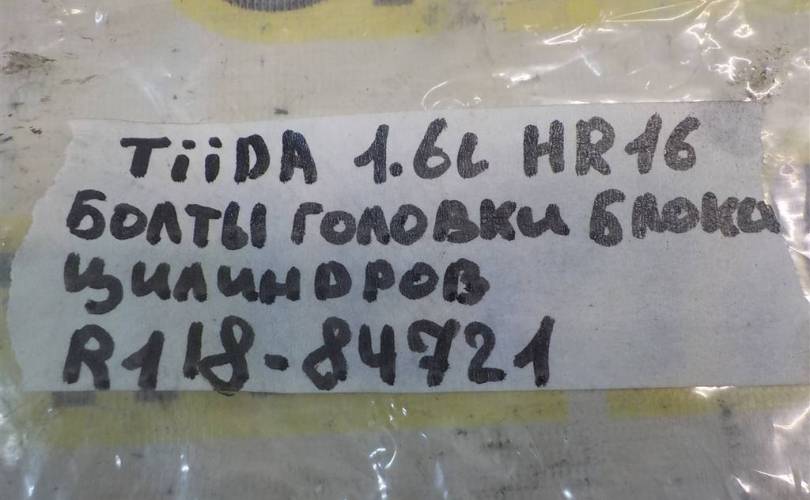 TiiDA 1.6L HR16
БОЛТЫ ГОЛОВКИ БЛОКА
ЦИЛИНДРОВ
R118-84721